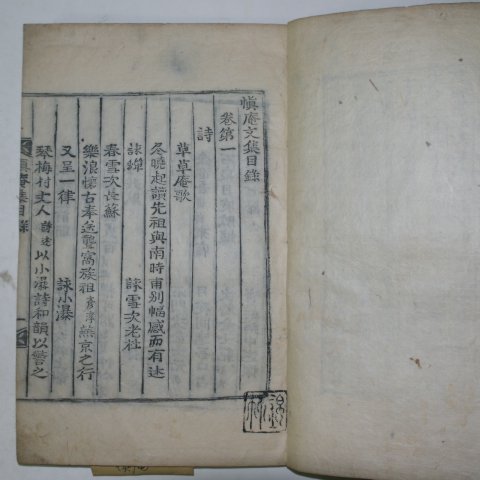 愼庵文集目錄
卷第一
詩
草草庵歌
冬曉起讀先祖與南時甫別幅感而有述
詠蟬 詠雪次老杜
春雪次長蘇
樂浪懷古奉送聾窩族祖 燕京之行
又呈一律 詠小瀑
琴梅村丈人 以小瀑詩和韻以警之
愼庵集目錄